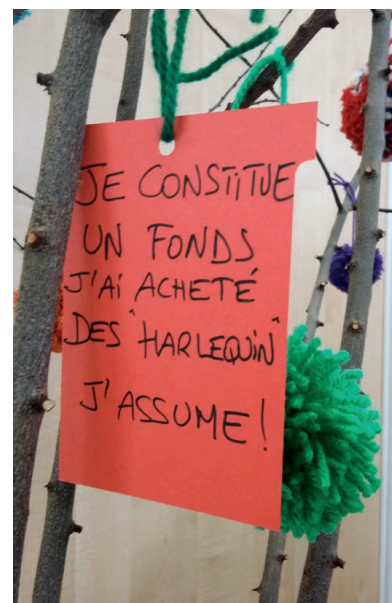 JE CONSTITUE
UN FONDS
J'AI ACHETÉ
DES "HARLEQUIN"
J'ASSUME!